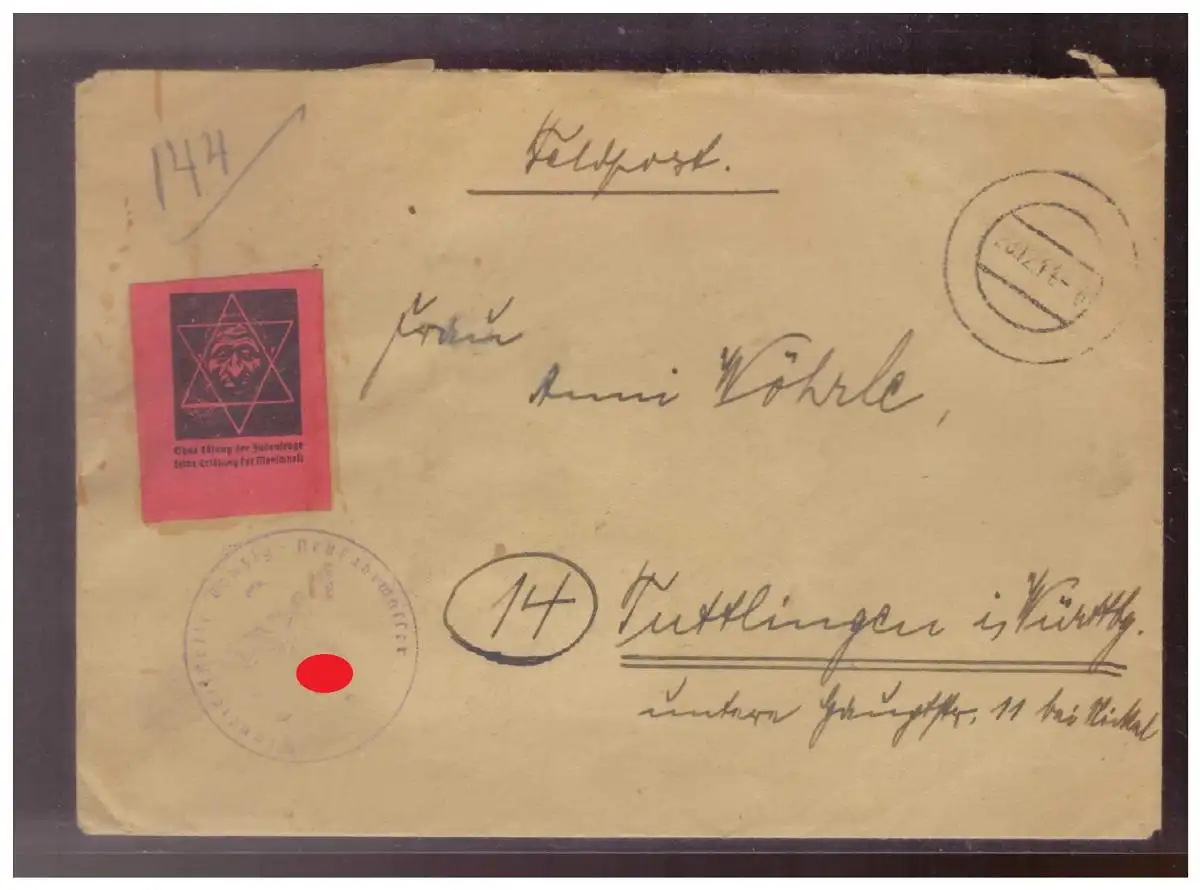 144
Feldpost.
Frau
Anni Wöhrle,
Ohne Lösung der Judenfrage
keine Erlösung der Menschheit
14 Tuttlingen i. Württbg.
untere Hauptstr. 11 bei Nickel